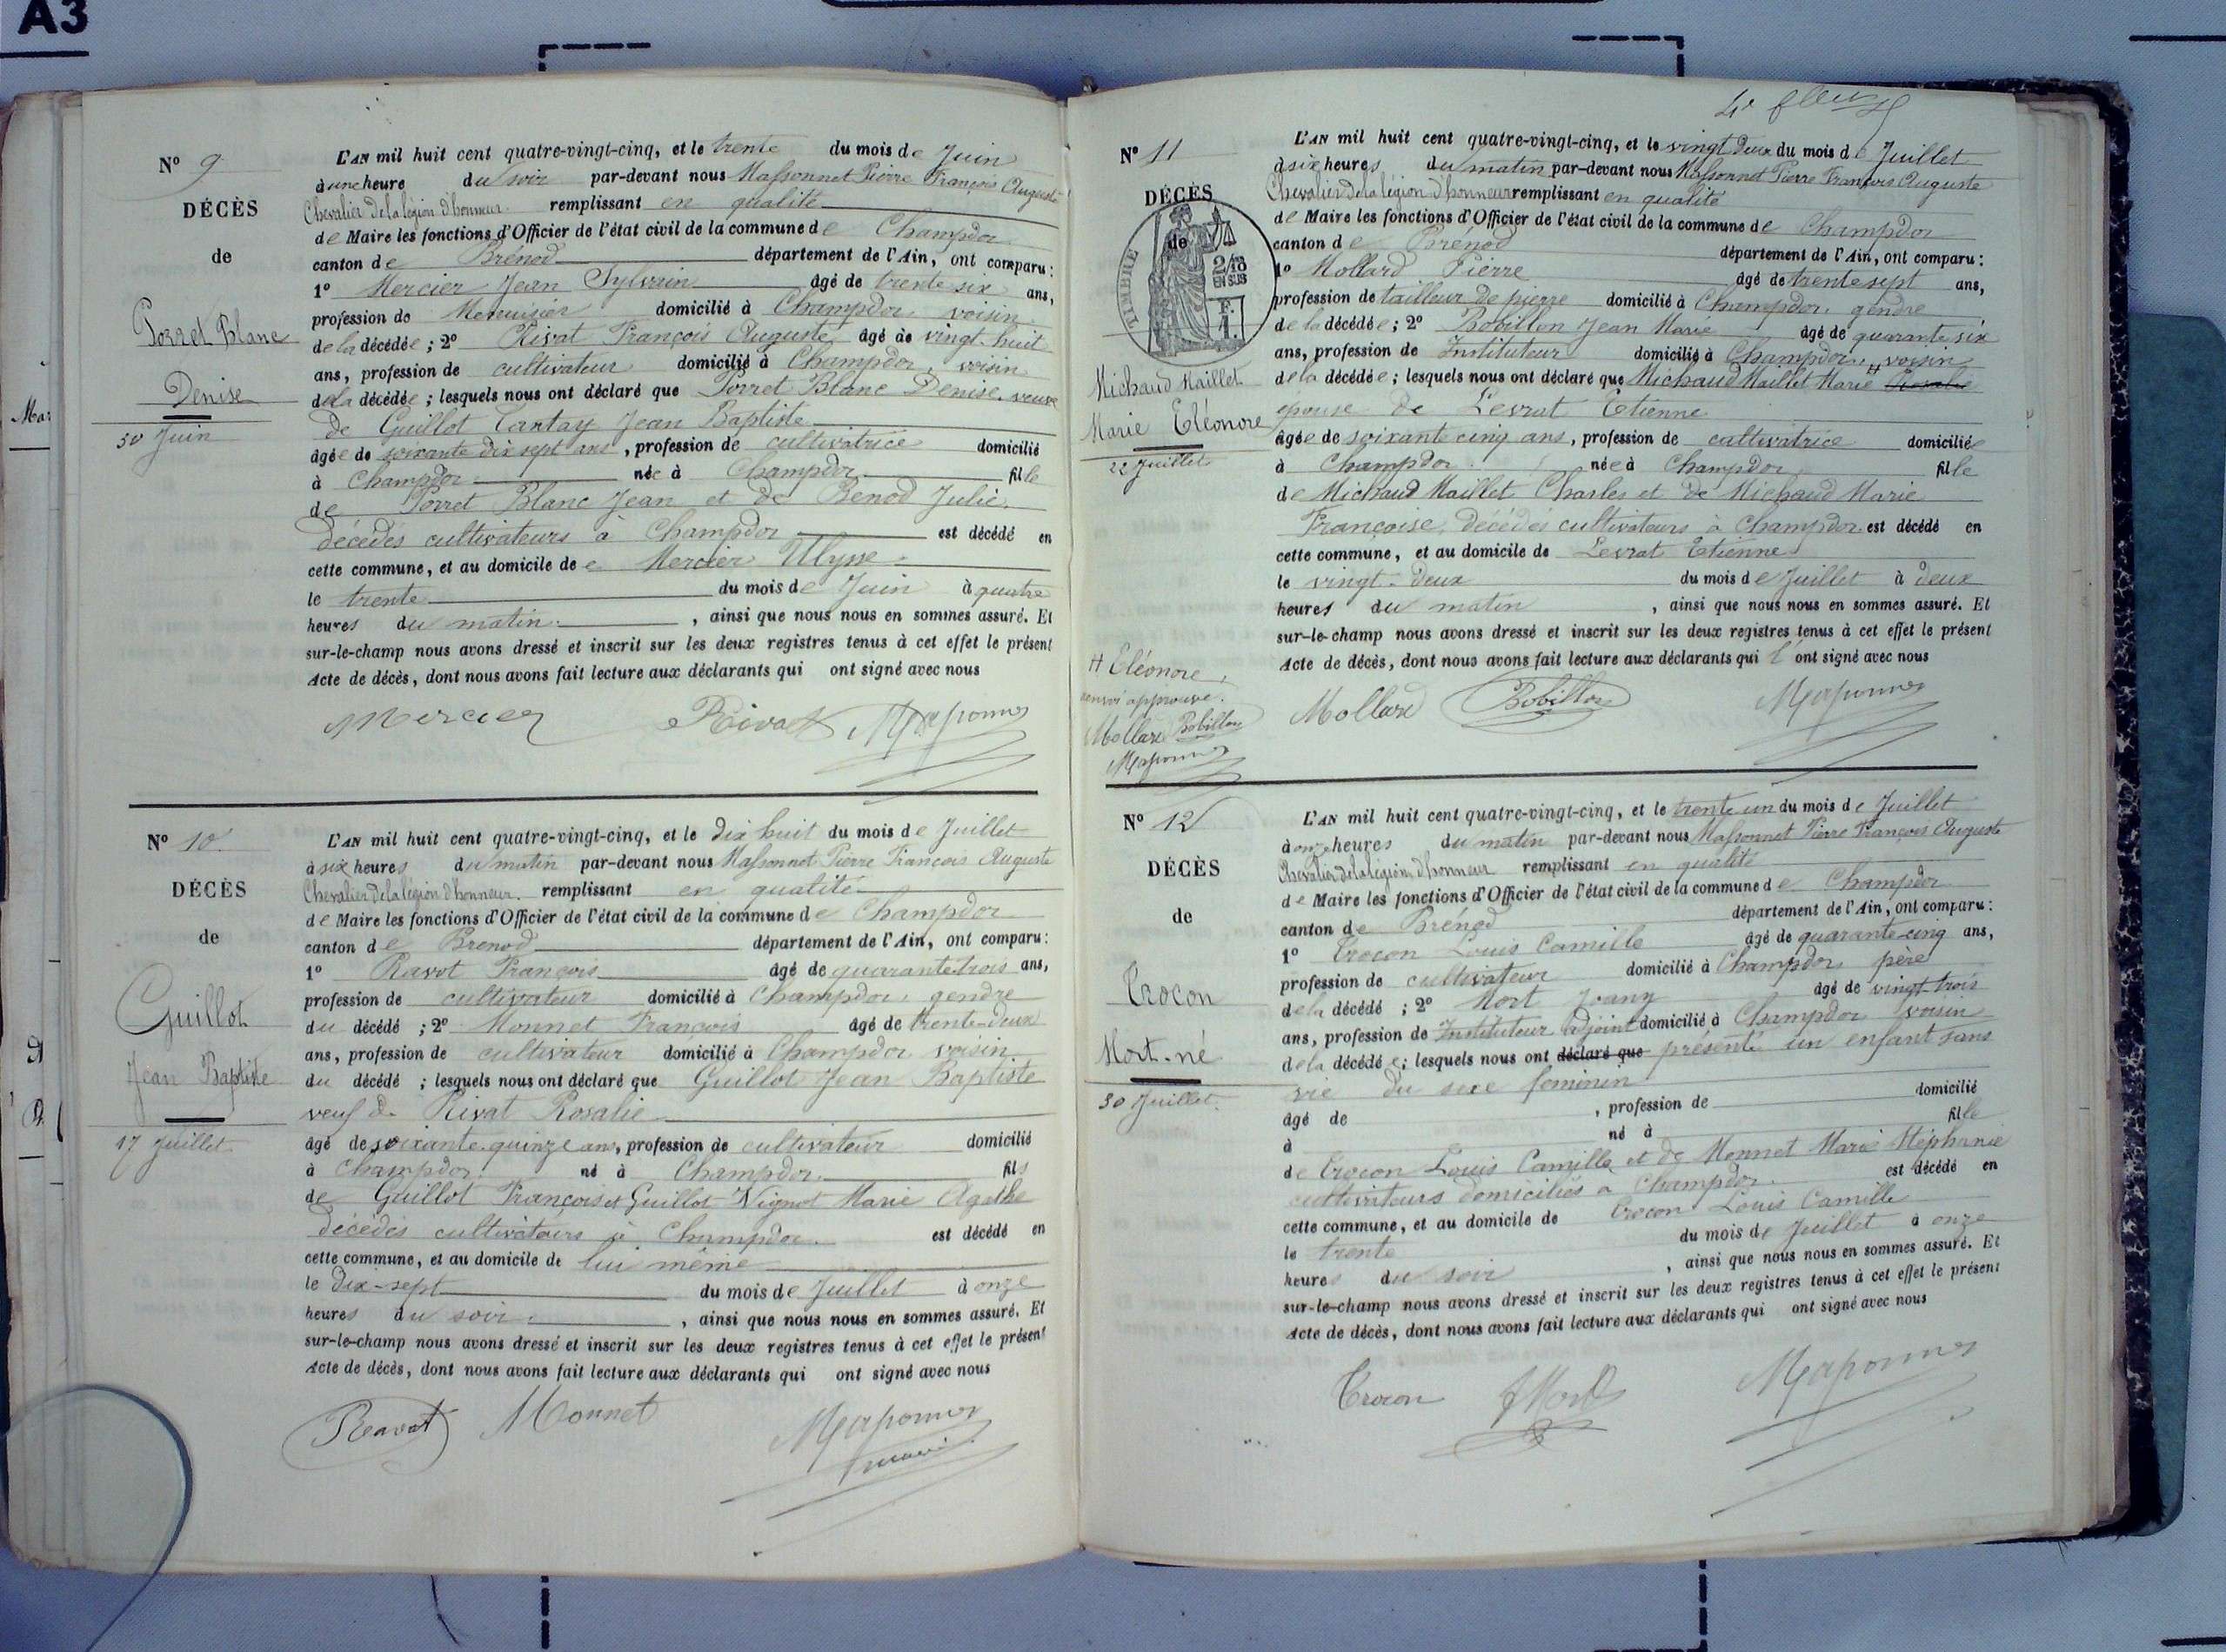 A3
Nº 9
DÉCÈS
de
Porret Blanc
Denise
30 Juin
L'AN mil huit cent quatre-vingt-cinq, et le trente du mois de Juin
à une heure du soir par-devant nous Massonnet Pierre François Auguste
Chevalier de la légion d'honneur remplissant en qualité
de Maire les fonctions d'Officier de l'état civil de la commune de Champdor
canton de Brénod département de l'Ain, ont comparu :
1º Mercier Jean Sylvain âgé de trente six ans,
profession de Menuisier domicilié à Champdor, voisin
de la décédée ; 2º Rivat François Auguste âgé de vingt-huit
ans, profession de cultivateur domicilié à Champdor, voisin
de la décédée ; lesquels nous ont déclaré que Porret Blanc Denise, veuve
de Guillot Tantay Jean Baptiste
âgée de soixante dix sept ans, profession de cultivatrice domicilié
à Champdor née à Champdor fille
de Porret Blanc Jean et de Benod Julie,
décédés cultivateurs à Champdor est décédé en
cette commune, et au domicile de Mercier Ulysse
le trente du mois de Juin à quatre
heures du matin, ainsi que nous nous en sommes assuré. Et
sur-le-champ nous avons dressé et inscrit sur les deux registres tenus à cet effet le présent
Acte de décès, dont nous avons fait lecture aux déclarants qui ont signé avec nous
Mercier Rivat Massonnet
Nº 10
DÉCÈS
de
Guillot
Jean Baptiste
17 Juillet
L'AN mil huit cent quatre-vingt-cinq, et le dix huit du mois de Juillet
à six heures du matin par-devant nous Massonnet Pierre François Auguste
Chevalier de la légion d'honneur. remplissant en qualité
de Maire les fonctions d'Officier de l'état civil de la commune de Champdor
canton de Brenod département de l'Ain, ont comparu :
1º Ravot François âgé de quarante trois ans,
profession de cultivateur domicilié à Champdor, gendre
du décédé ; 2º Monnet François âgé de trente-deux
ans, profession de cultivateur domicilié à Champdor voisin
du décédé ; lesquels nous ont déclaré que Guillot Jean Baptiste
veuf de Rivat Rosalie
âgé de soixante-quinze ans, profession de cultivateur domicilié
à Champdor né à Champdor fils
de Guillot François et Guillot Vignot Marie Agathe
décédés cultivateurs à Champdor. est décédé en
cette commune, et au domicile de lui même
le dix-sept du mois de Juillet à onze
heures du soir, ainsi que nous nous en sommes assuré. Et
sur-le-champ nous avons dressé et inscrit sur les deux registres tenus à cet effet le présent
Acte de décès, dont nous avons fait lecture aux déclarants qui ont signé avec nous
Ravot Monnet Massonnet
Nº 11
DÉCÈS
de
TIMBRE
2/10
EN SUS
F.
1.
Michaud Maillet
Marie Eléonore
22 Juillet
L'AN mil huit cent quatre-vingt-cinq, et le vingt deux du mois de Juillet
à six heures du matin par-devant nous Massonnet Pierre François Auguste
Chevalier de la légion d'honneur remplissant en qualité
de Maire les fonctions d'Officier de l'état civil de la commune de Champdor
canton de Brénod département de l'Ain, ont comparu :
1º Mollard Pierre âgé de trente sept ans,
profession de tailleur de pierre domicilié à Champdor, gendre
de la décédée ; 2º Bobillon Jean Marie âgé de quarante six
ans, profession de Instituteur domicilié à Champdor, voisin
de la décédée ; lesquels nous ont déclaré que Michaud Maillet Marie
épouse de Levrat Etienne
âgée de soixante cinq ans, profession de cultivatrice domiciliée
à Champdor née à Champdor fille
de Michaud Maillet Charles et de Michaud Marie
Françoise, décédés cultivateurs à Champdor est décédé en
cette commune, et au domicile de Levrat Etienne
le vingt-deux du mois de Juillet à deux
heures du matin, ainsi que nous nous en sommes assuré. Et
sur-le-champ nous avons dressé et inscrit sur les deux registres tenus à cet effet le présent
Acte de décès, dont nous avons fait lecture aux déclarants qui l'ont signé avec nous
Mollard Bobillon Massonnet
# Eléonore,
renvoi approuvé.
Mollard Bobillon
Massonnet
Nº 12
DÉCÈS
de
Crocon
Mort-né
30 Juillet.
L'AN mil huit cent quatre-vingt-cinq, et le trente un du mois de Juillet
à onze heures du matin par-devant nous Massonnet Pierre François Auguste
Chevalier de la légion d'honneur remplissant en qualité
de Maire les fonctions d'Officier de l'état civil de la commune de Champdor
canton de Brénod département de l'Ain, ont comparu :
1º Crocon Louis Camille âgé de quarante-cinq ans,
profession de cultivateur domicilié à Champdor, père
de la décédé ; 2º Mort Joany âgé de vingt trois
ans, profession de Instituteur adjoint domicilié à Champdor voisin
de la décédée ; lesquels nous ont déclaré que présenté un enfant sans
vie du sexe féminin
âgé de , profession de domicilié
à né à fille
de Crocon Louis Camille et de Monnet Marie Stéphanie
cultivateurs domiciliés à Champdor. est décédé en
cette commune, et au domicile de Crocon Louis Camille
le trente du mois de Juillet à onze
heures du soir, ainsi que nous nous en sommes assuré. Et
sur-le-champ nous avons dressé et inscrit sur les deux registres tenus à cet effet le présent
Acte de décès, dont nous avons fait lecture aux déclarants qui ont signé avec nous
Crocon JMort Massonnet